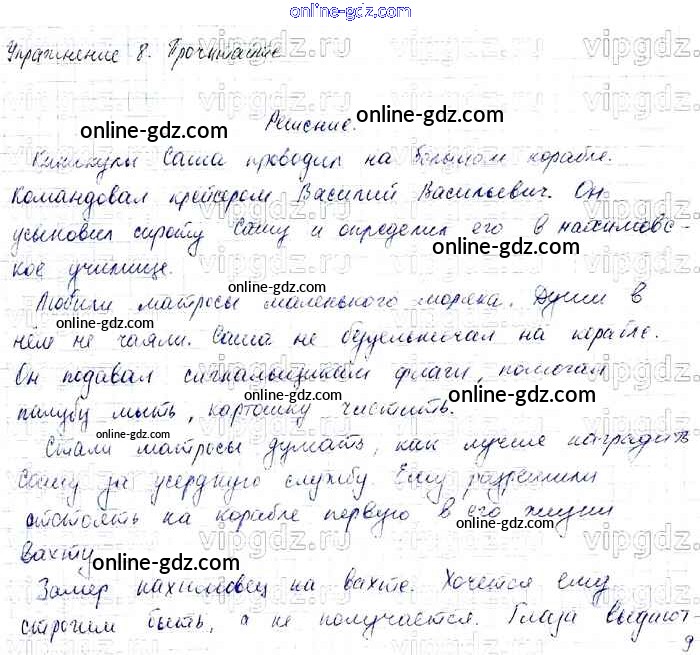 online-gdz.com
Упражнение 8. Прочитайте
Решение.
Каникулы Саша проводил на большом корабле.
Командовал крейсером Василий Васильевич. Он
усыновил сироту Сашу и определил его в нахимовс-
кое училище.
Любили матросы маленького моряка. Души в
нём не чаяли. Саша не бездельничал на корабле.
Он подавал сигнальщикам флаги, помогал
палубу мыть, картошку чистить.
Стали матросы думать, как лучше наградить
Сашу за усердную службу. Ему разрешили
отстоять на корабле первую в его жизни
вахту
Замер нахимовец на вахте. Хочется ему
строгим быть, а не получается. Глаза выдают
9